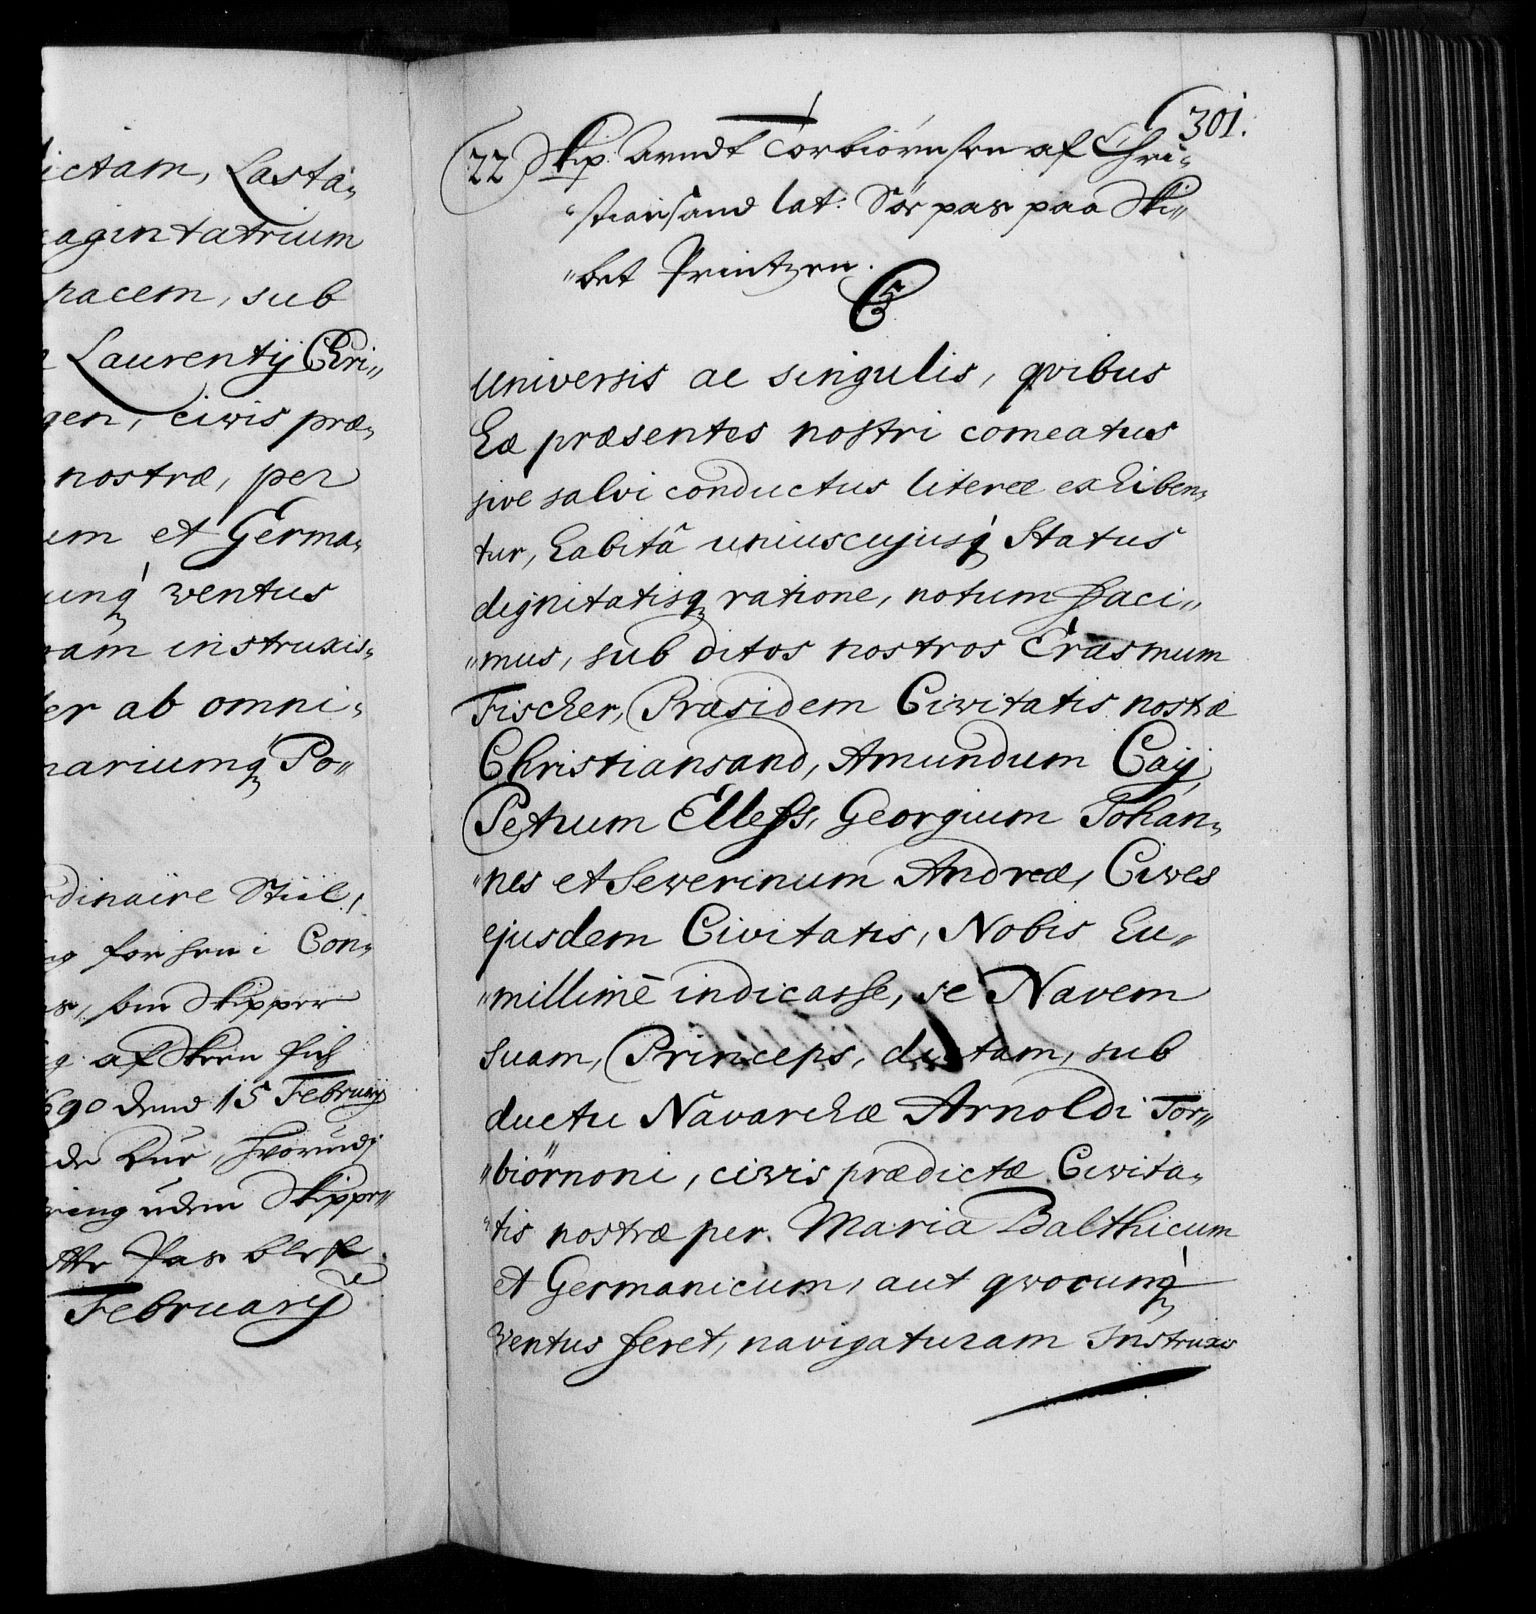 ictam, Lasta-
agintatrium
pacem, sub
Laurentij Chri-
gen, civis præ-
nostræ, per
um et Germa-
unq ventus
ram instruxis-
er ab omni-
nariumq Po-
rdinaire Stiil,
for hen i Con-
Skipper
af Skeen
690 dend 15 February
de Dúe, hvorúdj
ring úden Skippe-
Pas blef
February
301.
22 Skip. Arndt Torbiörnsen af Chri-
stiansand lat: Söe pas paa Ski-
bet Printzen.
C5
Universis ac singulis, qvibus
hæ præsentes nostri comeatus
sive salvi conductus literæ exhiben-
tur, habitâ uniuscujusq Status
dignitatisq ratione, notum faci-
mus, subditos nostros Erasmum
Fischer, Præsidem Civitatis nostræ
Christiansand, Amundum Caij,
Petrum Elless, Georgium Johan-
nes et Severinum Andreæ, Cives
ejusdem Civitatis, Nobis hu-
millimè indicasse, se Navem
suam, Princeps, dictam, sub
ductu Navarchæ Arnoldi Tor-
biörnoni, civis prædictæ Civita-
tis nostræ per Maria Balthicum
et Germanicum, aut qvocunq
ventus feret, navigaturam Instruxis